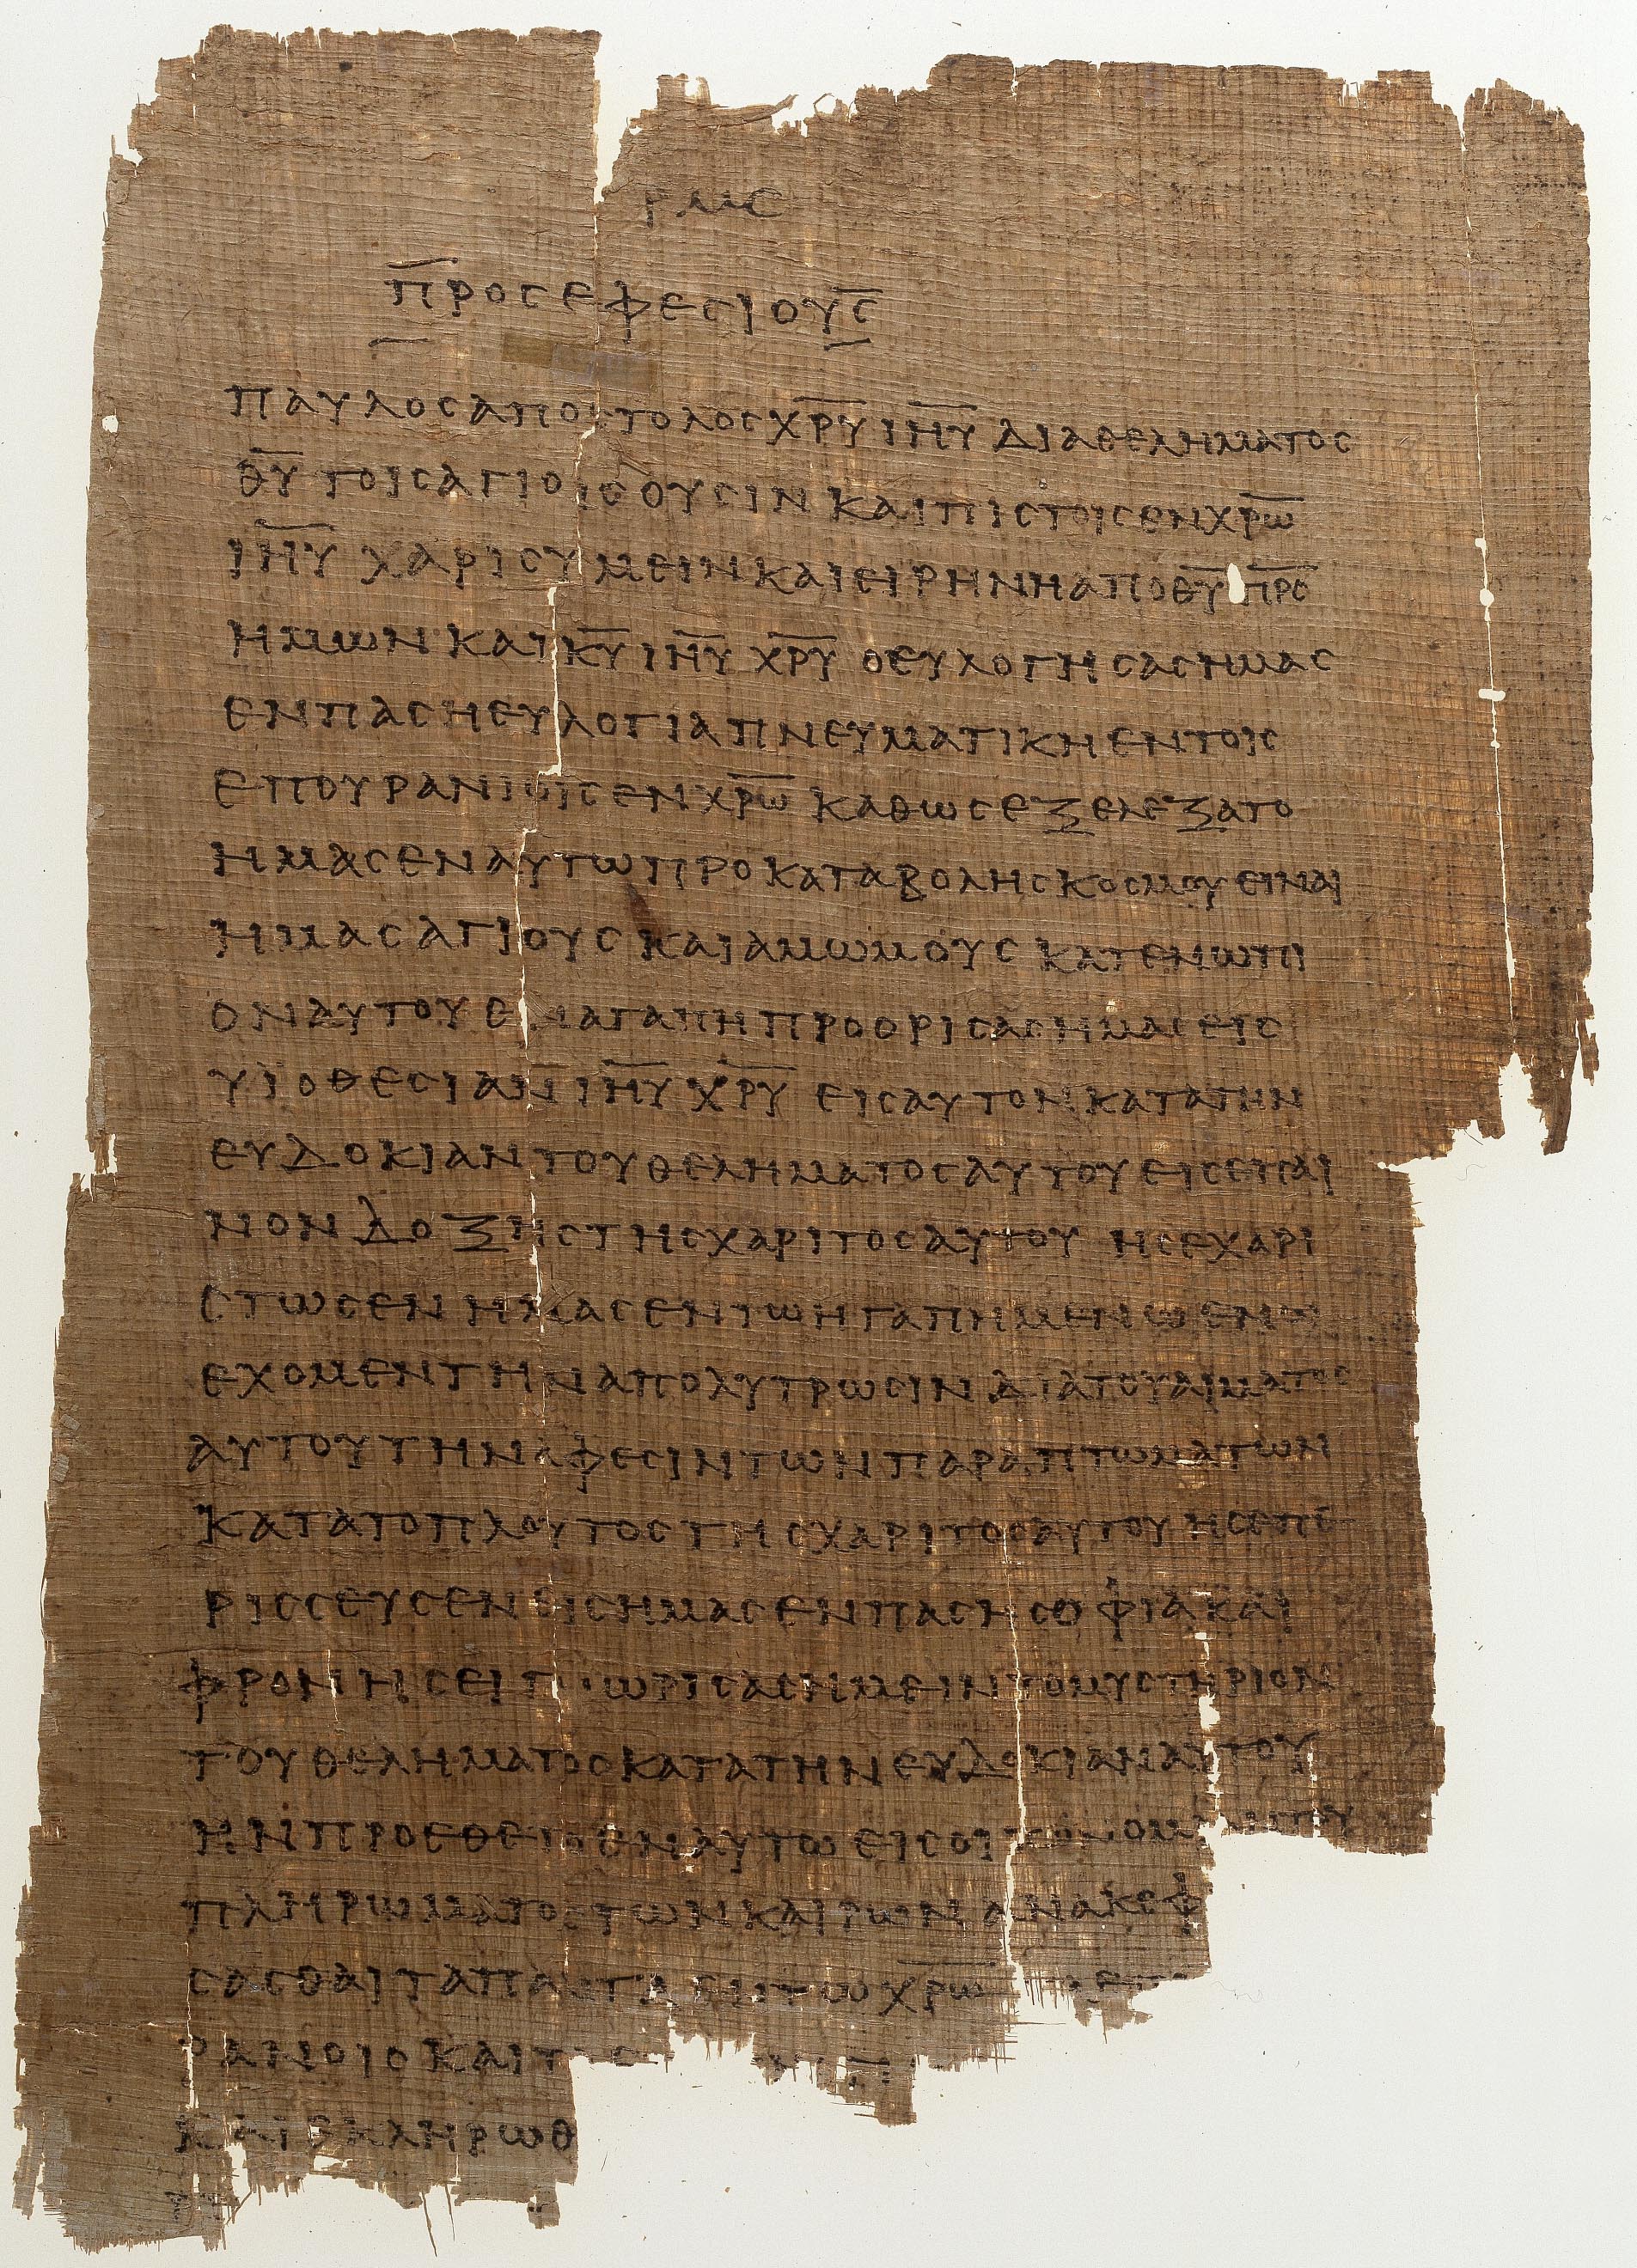 ΡΜϚ
ΠΡΟϹΕΦΕϹΙΟΥϹ
ΠΑΥΛΟϹΑΠΟϹΤΟΛΟϹΧ̅Ρ̅Υ̅ΙΗ̅Υ̅ΔΙΑΘΕΛΗΜΑΤΟϹ
Θ̅Υ̅ΤΟΙϹΑΓΙΟΙϹΟΥϹΙΝΚΑΙΠΙϹΤΟΙϹΕΝΧ̅Ρ̅Ω̅
Ι̅Η̅Υ̅ΧΑΡΙϹΥΜΕΙΝΚΑΙΕΙΡΗΝΗΑΠΟΘ̅Υ̅Π̅Ρ̅Ο̅
ΗΜΩΝΚΑΙΚ̅Υ̅Ι̅Η̅Υ̅Χ̅Ρ̅Υ̅ΟΕΥΛΟΓΗϹΑϹΗΜΑϹ
ΕΝΠΑϹΗΕΥΛΟΓΙΑΠΝΕΥΜΑΤΙΚΗΕΝΤΟΙϹ
ΕΠΟΥΡΑΝΙΟΙϹΕΝΧ̅Ρ̅Ω̅ΚΑΘΩϹΕΞΕΛΕΞΑΤΟ
ΗΜΑϹΕΝΑΥΤΩΠΡΟΚΑΤΑΒΟΛΗϹΚΟϹΜΟΥΕΙΝΑΙ
ΗΜΑϹΑΓΙΟΥϹΚΑΙΑΜΩΜΟΥϹΚΑΤΕΝΩΠΙ
ΟΝΑΥΤΟΥΕΝΑΓΑΠΗΠΡΟΟΡΙϹΑϹΗΜΑϹΕΙϹ
ΥΪΟΘΕϹΙΑΝΙ̅Η̅Υ̅Χ̅Ρ̅Υ̅ΕΙϹΑΥΤΟΝΚΑΤΑΤΗΝ
ΕΥΔΟΚΙΑΝΤΟΥΘΕΛΗΜΑΤΟϹΑΥΤΟΥΕΙϹΕΠΑΙ
ΝΟΝΔΟΞΗϹΤΗϹΧΑΡΙΤΟϹΑΥΤΟΥΗϹΕΧΑΡΙ
ϹΤΩϹΕΝΗΜΑϹΕΝΤΩΗΓΑΠΗΜΕΝΩΕΝΩ
ΕΧΟΜΕΝΤΗΝΑΠΟΛΥΤΡΩϹΙΝΔΙΑΤΟΥΑΙΜΑΤΟϹ
ΑΥΤΟΥΤΗΝΑΦΕϹΙΝΤΩΝΠΑΡΑΠΤΩΜΑΤΩΝ
ΚΑΤΑΤΟΠΛΟΥΤΟϹΤΗϹΧΑΡΙΤΟϹΑΥΤΟΥΗϹΕΠΕ
ΡΙϹϹΕΥϹΕΝΕΙϹΗΜΑϹΕΝΠΑϹΗϹΟΦΙΑΚΑΙ
ΦΡΟΝΗϹΕΙΓΝΩΡΙϹΑϹΗΜΕΙΝΤΟΜΥϹΤΗΡΙΟΝ
ΤΟΥΘΕΛΗΜΑΤΟϹΚΑΤΑΤΗΝΕΥΔΟΚΙΑΝΑΥΤΟΥ
ΗΝΠΡΟΕΘΕΤΟΕΝΑΥΤΩΕΙϹΟΙΚΟΝΟΜΙΑΝΤΟΥ
ΠΛΗΡΩΜΑΤΟϹΤΩΝΚΑΙΡΩΝΑΝΑΚΕΦ
ϹΑϹΘΑΙΤΑΠΑΝΤΑΕΝΤΩΧ̅Ρ̅Ω̅
ΡΑΝΟΙϹΚΑΙΤ
ΚΑΙΕΚΛΗΡΩΘ